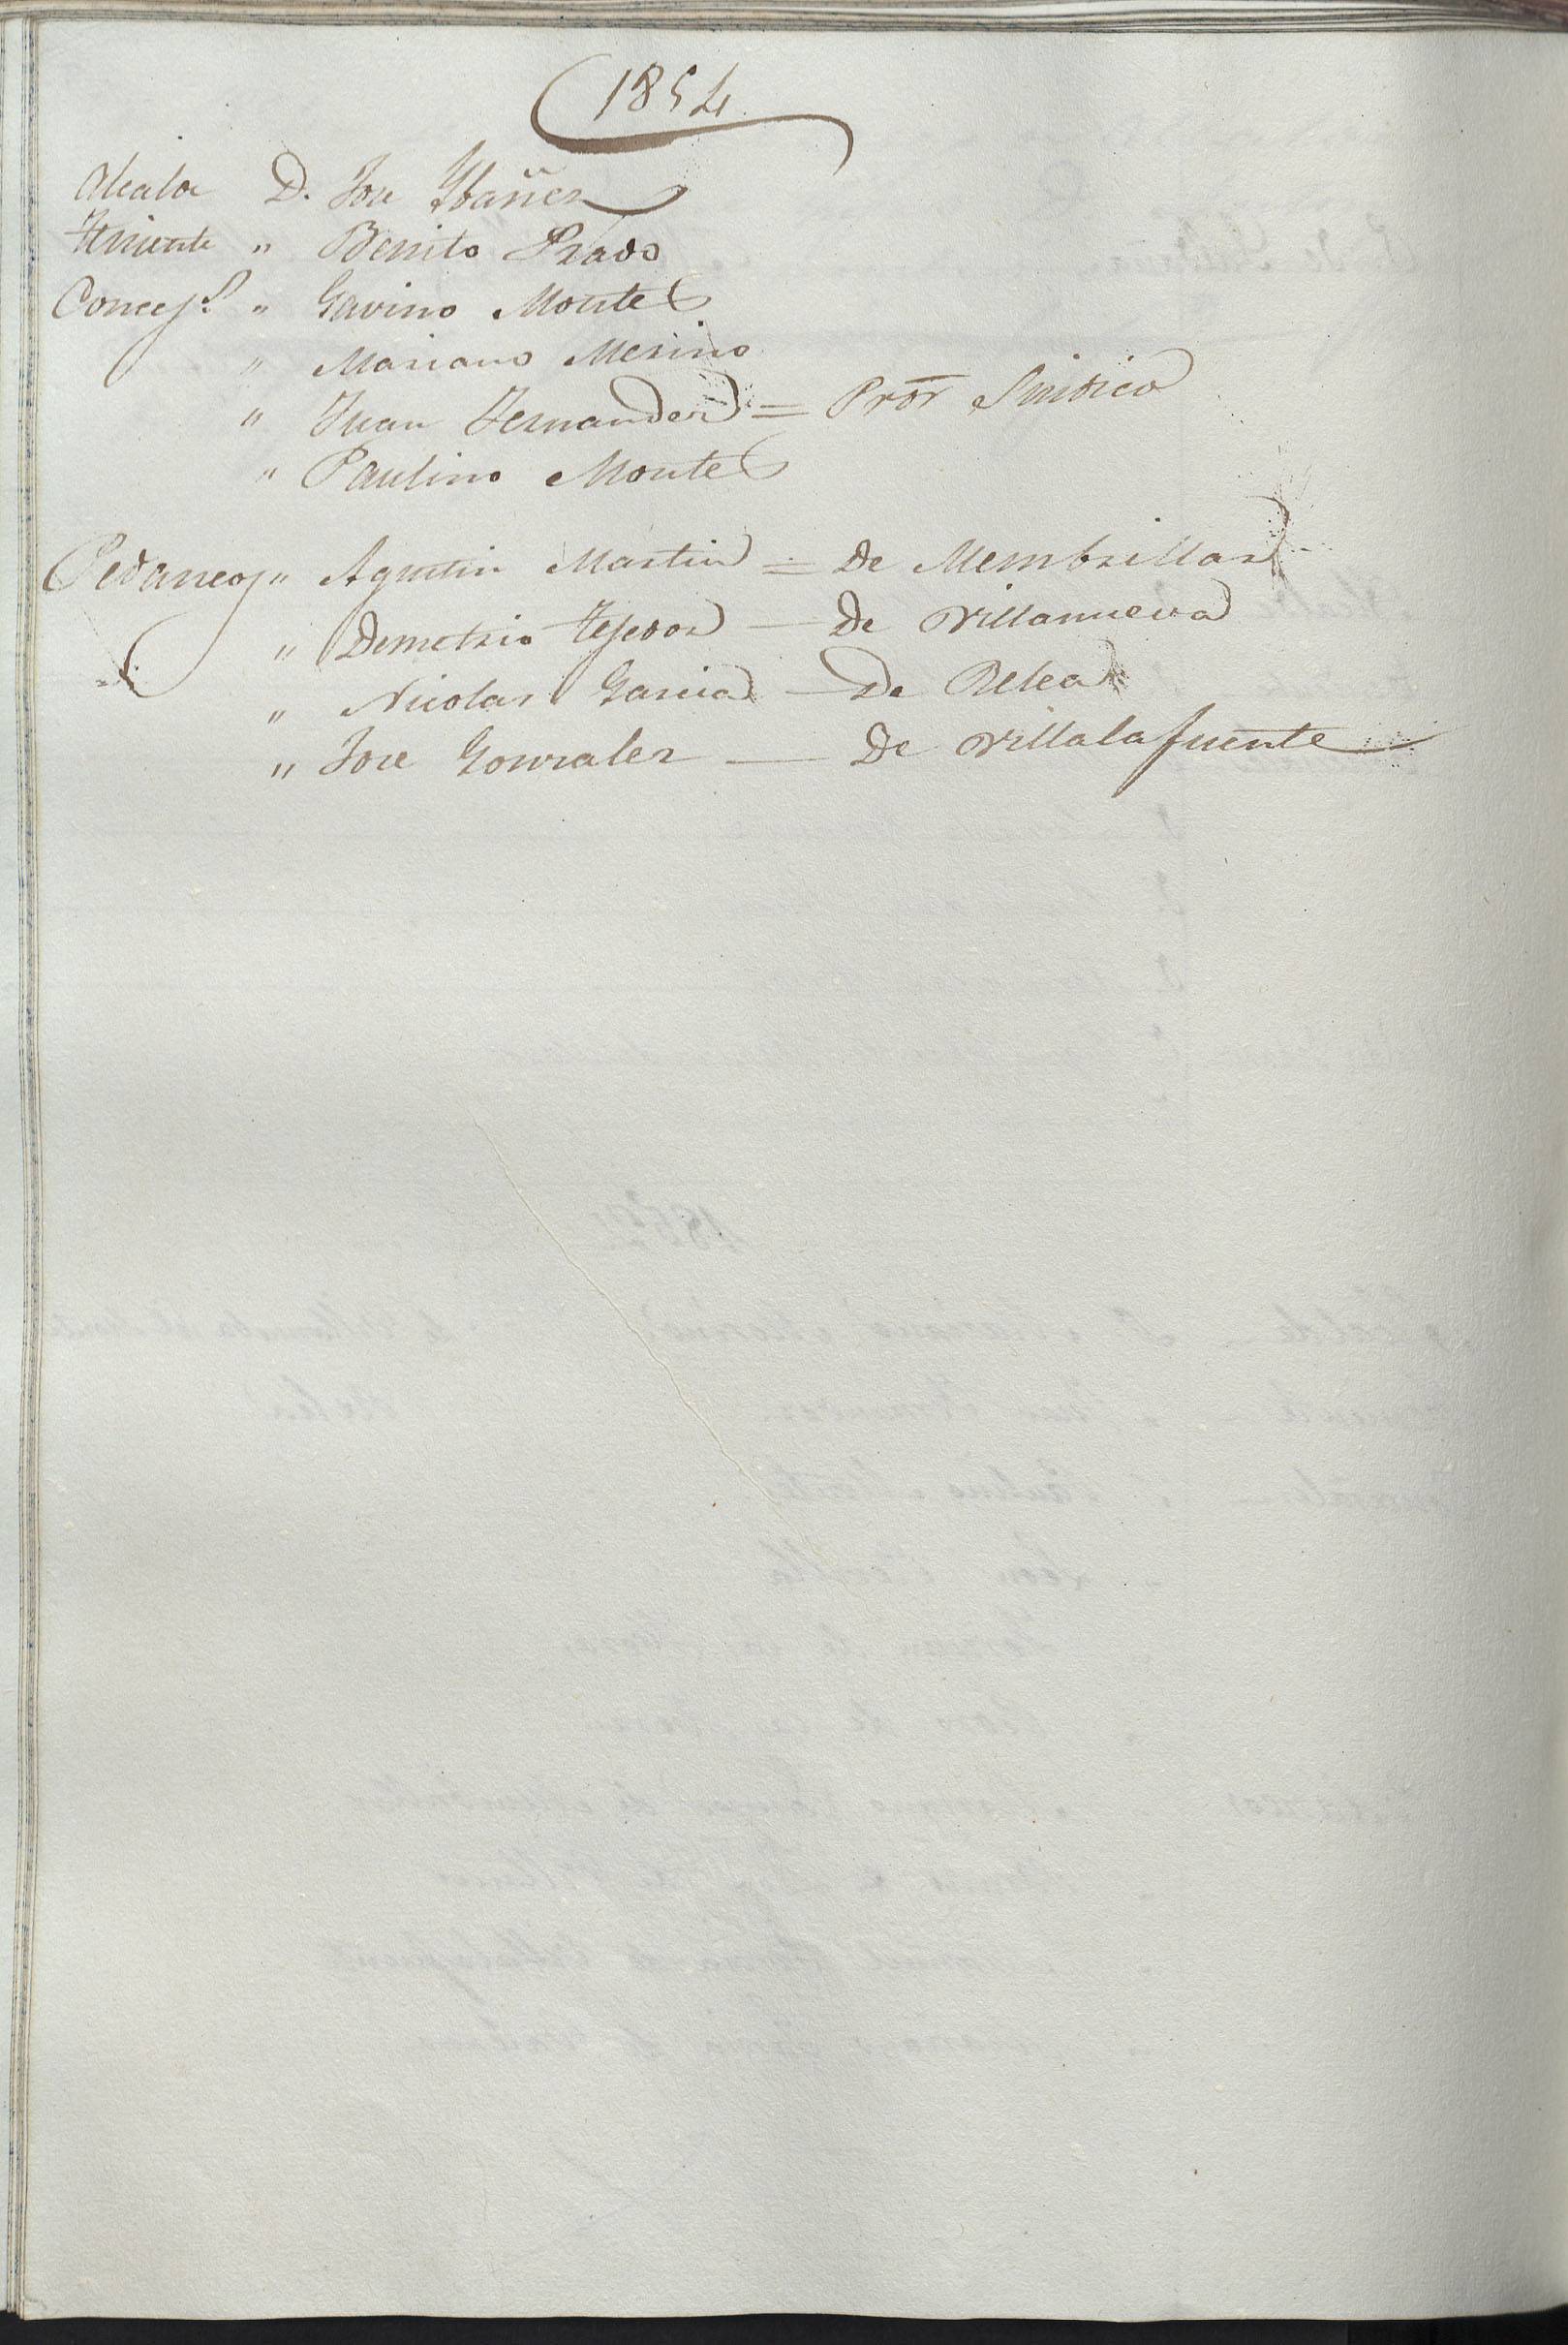 1854
Alcalde D. Jose Ybañez
Teniente " Benito Prado
Concej.s " Gavino Montes
" Mariano Merino
" Juan Fernandez = Pror Sindico
" Paulino Montes
Pedaneos " Agustin Martin = De Membrillar
" Demetrio Tejedor — De Villanueva
" Nicolas Garcia — De Relea
" Jose Gonzalez — De Villalafuente